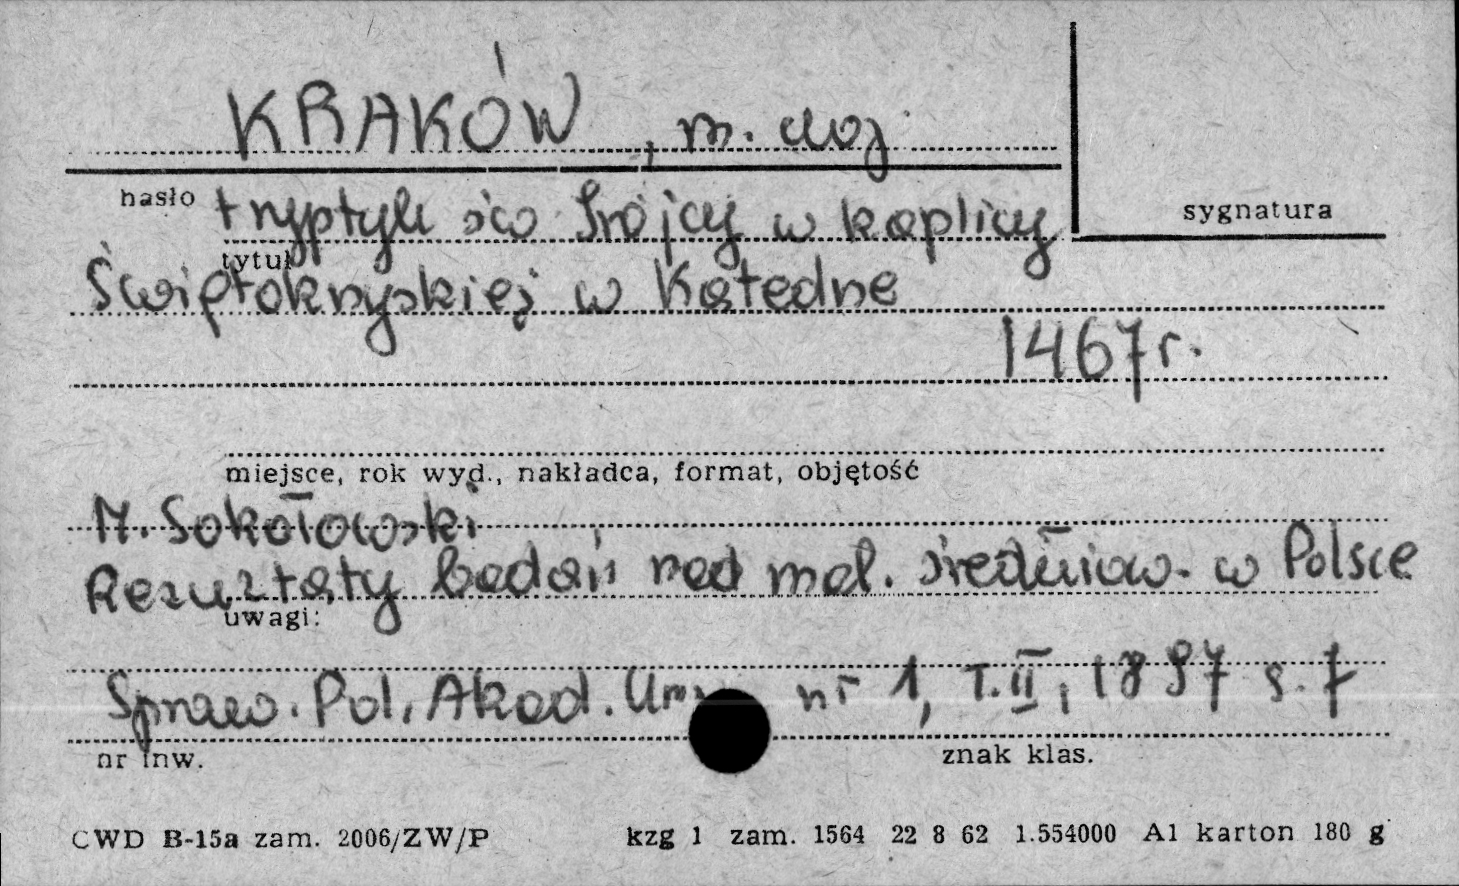 KRAKÓW, m. woj.
hasło
tryptyk św Trójcy w kaplicy
sygnatura
tytuł
Świętokrzyskiej w Katedrze
1467 r.
miejsce, rok wyd., nakładca, format, objętość
M. Sokołowski
Rezultaty badań nad mal. średniow. w Polsce
uwagi:
Spraw. Pol. Akad. Um. nr 1, T.II, 1897 s. 7
nr inw.
znak klas.
CWD B-15a zam. 2006/ZW/P kzg 1 zam. 1564 22 8 62 1.554000 A1 karton 180 g